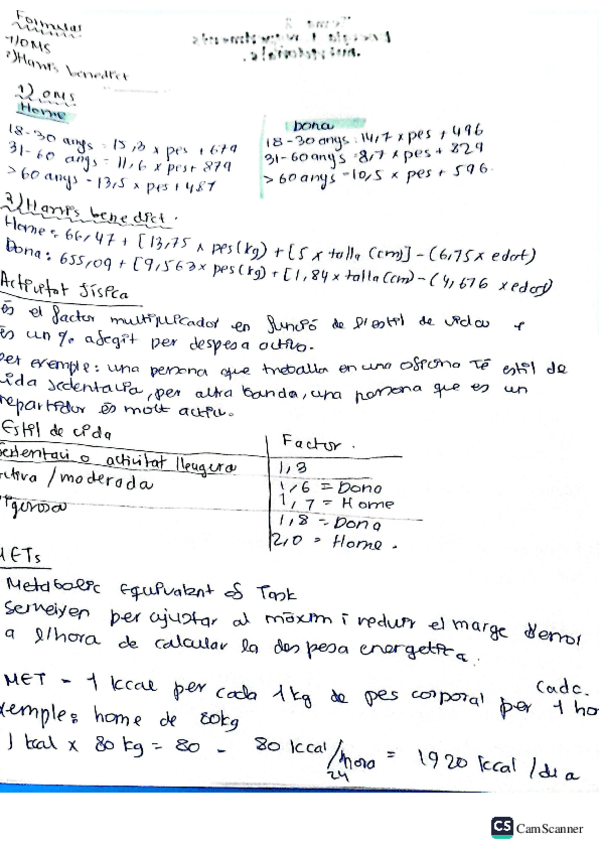 Formulas
1) OMS
2) Harris benedict
1) OMS
Home
18-30 anys = 15,3 x pes + 679
31-60 anys = 11,6 x pes + 879
>60 anys - 13,5 x pes + 487
Dona
18-30 anys: 14,7 x pes + 496
31-60 anys = 8,7 x pes + 829
>60 anys - 10,5 x pes + 596.
2) Harris benedict.
Home = 66,47 + [13,75 x pes (kg) + [5 x talla (cm)] - (6,75 x edat)
Dona: 655,09 + [9,563 x pes (kg) + [1,84 x talla (cm) - (4,676 x edat)
Activitat física
és el factor multiplicador en funció de l'estil de vida
és un % afegit per despesa activa.
per exemple: una persona que treballa en una oficina té estil de
vida sedentaria, per altra banda, una persona que es un
repartidor és molt actiu.
Estil de vida
Factor.
sedentari o activitat lleugera
1,3
activa / moderada
1,6 = Dona
1,7 = Home
vigorosa
1,8 = Dona
2,0 = Home.
METs
Metabolic equivalent of Task
Serveixen per ajustar al màxim i reduir el marge d'error
a l'hora de calcular la despesa energetica.
MET - 1 kcal per cada 1 kg de pes corporal per cada 1 ho
exemple: home de 80kg
1 kcal x 80 kg = 80 - 80 kcal/hora = 1920 kcal / dia
24
CS CamScanner